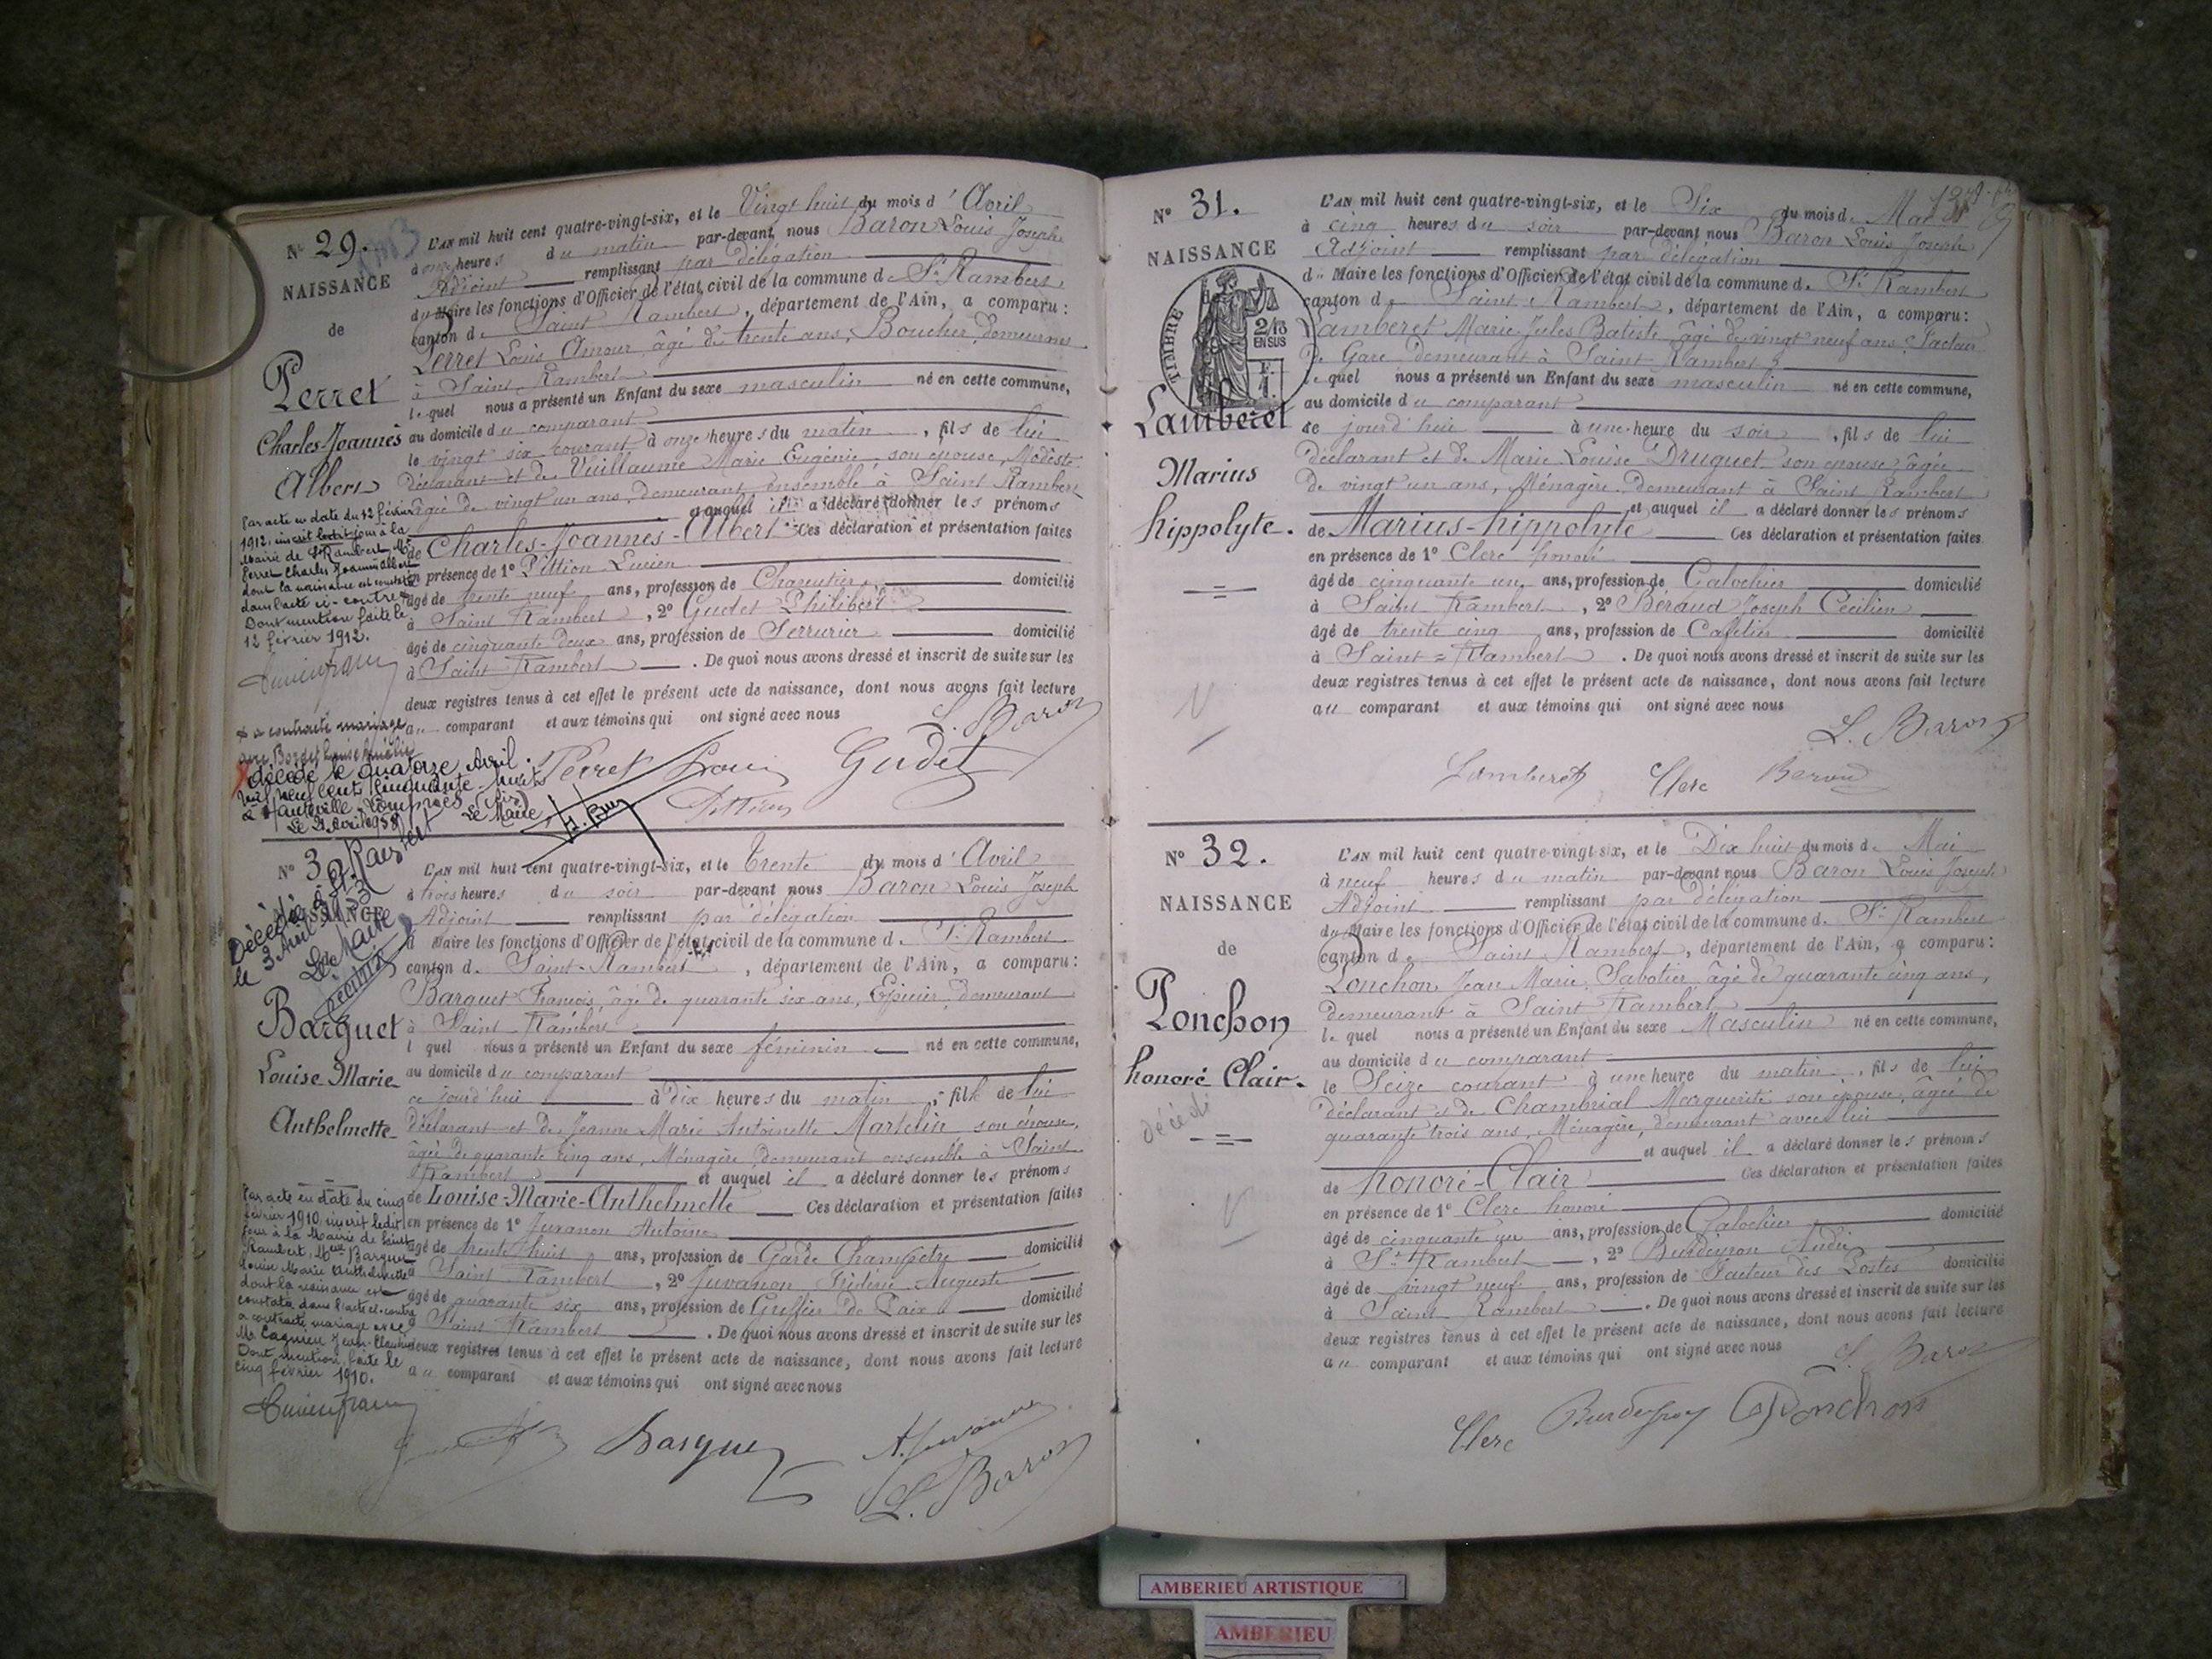 N° 29.
NAISSANCE
de
Perret
Charles Joannès
Albert
L'AN mil huit cent quatre-vingt-six, et le Vingt huit du mois d'Avril
à onze heures du matin par-devant nous Baron Louis Joseph
Adjoint remplissant par délégation
du Maire les fonctions d'Officier de l'état civil de la commune de St Rambert
canton de Saint Rambert, département de l'Ain, a comparu:
Perret Louis Amour, âgé de trente ans, Boucher, demeurant
à Saint Rambert
lequel nous a présenté un Enfant du sexe masculin né en cette commune,
au domicile du comparant
le vingt six courant à onze heures du matin, fils de lui
déclarant et de Vuillaume Marie Eugénie son épouse, Modiste
âgée de vingt un ans, demeurant ensemble à Saint Rambert
et auquel il a déclaré donner les prénoms
de Charles-Joannès-Albert Ces déclaration et présentation faites
en présence de 1° Pittion Lucien
âgé de trente neuf ans, profession de Charcutier domicilié
à Saint Rambert, 2° Gudet Philibert
âgé de cinquante deux ans, profession de Serrurier domicilié
à Saint Rambert. De quoi nous avons dressé et inscrit de suite sur les
deux registres tenus à cet effet le présent acte de naissance, dont nous avons fait lecture
au comparant et aux témoins qui ont signé avec nous
L. Baron
Perret Louis Gudet
Pittion
Par acte en date du 12 février
1912, inscrit ledit jour à la
Mairie de St Rambert, Mr
Perret Charles Joannès Albert
dont la naissance est constatée
dans l'acte ci-contre
Dont mention faite le
12 février 1912.
a contracté mariage
avec Bordet Louise
décédé le quatorze Avril
mil neuf cent cinquante-huit
à Hauteville-Lompnes (Ain)
Le 21 Avril 1958 Le Maire
N° 30
NAISSANCE
Décédée à St Rambert
le 3 Avril 1953
Le Maire
Barquet
Louise Marie
Anthelmette
L'AN mil huit cent quatre-vingt-six, et le Trente du mois d'Avril
à trois heures du soir par-devant nous Baron Louis Joseph
Adjoint remplissant par délégation
d Maire les fonctions d'Officier de l'état civil de la commune de St Rambert
canton de Saint-Rambert, département de l'Ain, a comparu:
Barquet François, âgé de quarante six ans, Epicier, demeurant
à Saint Rambert
l quel nous a présenté un Enfant du sexe féminin né en cette commune,
au domicile du comparant
ce jourd'hui à dix heures du matin, fille de lui
déclarant et de Jeanne Marie Antoinette Martelin son épouse,
âgée de quarante cinq ans, Ménagère demeurant ensemble à Saint
Rambert et auquel il a déclaré donner les prénoms
de Louise-Marie-Anthelmette Ces déclaration et présentation faites
en présence de 1° Juvanon Antoine
âgé de trente huit ans, profession de Garde Champêtre domicilié
à Saint Rambert, 2° Juvanon Frédéric Auguste
âgé de quarante six ans, profession de Greffier de Paix domicilié
à Saint Rambert. De quoi nous avons dressé et inscrit de suite sur les
deux registres tenus à cet effet le présent acte de naissance, dont nous avons fait lecture
au comparant et aux témoins qui ont signé avec nous
Barquet A. Juvanon
L. Baron
Par acte en date du cinq
février 1910 inscrit ledit
jour à la Mairie de Saint
Rambert, Melle Barquet
Louise Marie Anthelmette
dont la naissance est
constatée dans l'acte ci-contre
a contracté mariage avec
Mr Cagnien Jean
Dont mention faite le
cinq février 1910.
N° 31.
NAISSANCE
TIMBRE
2/10
EN SUS
Lamberet
Marius
hippolyte.
L'AN mil huit cent quatre-vingt-six, et le Six du mois de Mai
à cinq heures du soir par-devant nous Baron Louis Joseph
Adjoint remplissant par délégation
du Maire les fonctions d'Officier de l'état civil de la commune de St Rambert
canton de Saint Rambert, département de l'Ain, a comparu:
Lamberet Marie Jules Batiste âgé de vingt neuf ans, Facteur
de Gare, demeurant à Saint Rambert
lequel nous a présenté un Enfant du sexe masculin né en cette commune,
au domicile du comparant
ce jourd'hui à une heure du soir, fils de lui
déclarant et de Marie Louise Druguet son épouse, âgée
de vingt un ans, Ménagère, demeurant à Saint Rambert
et auquel il a déclaré donner les prénoms
de Marius-hippolyte Ces déclaration et présentation faites
en présence de 1° Clerc honoré
âgé de cinquante un ans, profession de Galochier domicilié
à Saint Rambert, 2° Béraud Joseph Cécilien
âgé de trente cinq ans, profession de Cafetier domicilié
à Saint=Rambert. De quoi nous avons dressé et inscrit de suite sur les
deux registres tenus à cet effet le présent acte de naissance, dont nous avons fait lecture
au comparant et aux témoins qui ont signé avec nous
L. Baron
Lamberet Clerc Beraud
N° 32.
NAISSANCE
de
Ponchon
honoré Clair.
décédé
L'AN mil huit cent quatre-vingt-six, et le Dix huit du mois de Mai
à neuf heures du matin par-devant nous Baron Louis Joseph
Adjoint remplissant par délégation
du Maire les fonctions d'Officier de l'état civil de la commune de St Rambert
canton de Saint Rambert, département de l'Ain, a comparu:
Ponchon Jean Marie, Sabotier, âgé de quarante cinq ans,
demeurant à Saint Rambert
lequel nous a présenté un Enfant du sexe Masculin né en cette commune,
au domicile du comparant
le Seize courant à une heure du matin, fils de lui
déclarant et de Chambrial Marguerite son épouse, âgée de
quarante trois ans, Ménagère, demeurant avec lui
et auquel il a déclaré donner les prénoms
de honoré-Clair Ces déclaration et présentation faites
en présence de 1° Clerc honoré
âgé de cinquante un ans, profession de Galochier domicilié
à St Rambert, 2° Burdeyron Andéa
âgé de vingt neuf ans, profession de Facteur des Postes domicilié
à Saint Rambert. De quoi nous avons dressé et inscrit de suite sur les
deux registres tenus à cet effet le présent acte de naissance, dont nous avons fait lecture
au comparant et aux témoins qui ont signé avec nous
L. Baron
Clerc Burdeyron Ponchon
AMBERIEU ARTISTIQUE
AMBERIEU